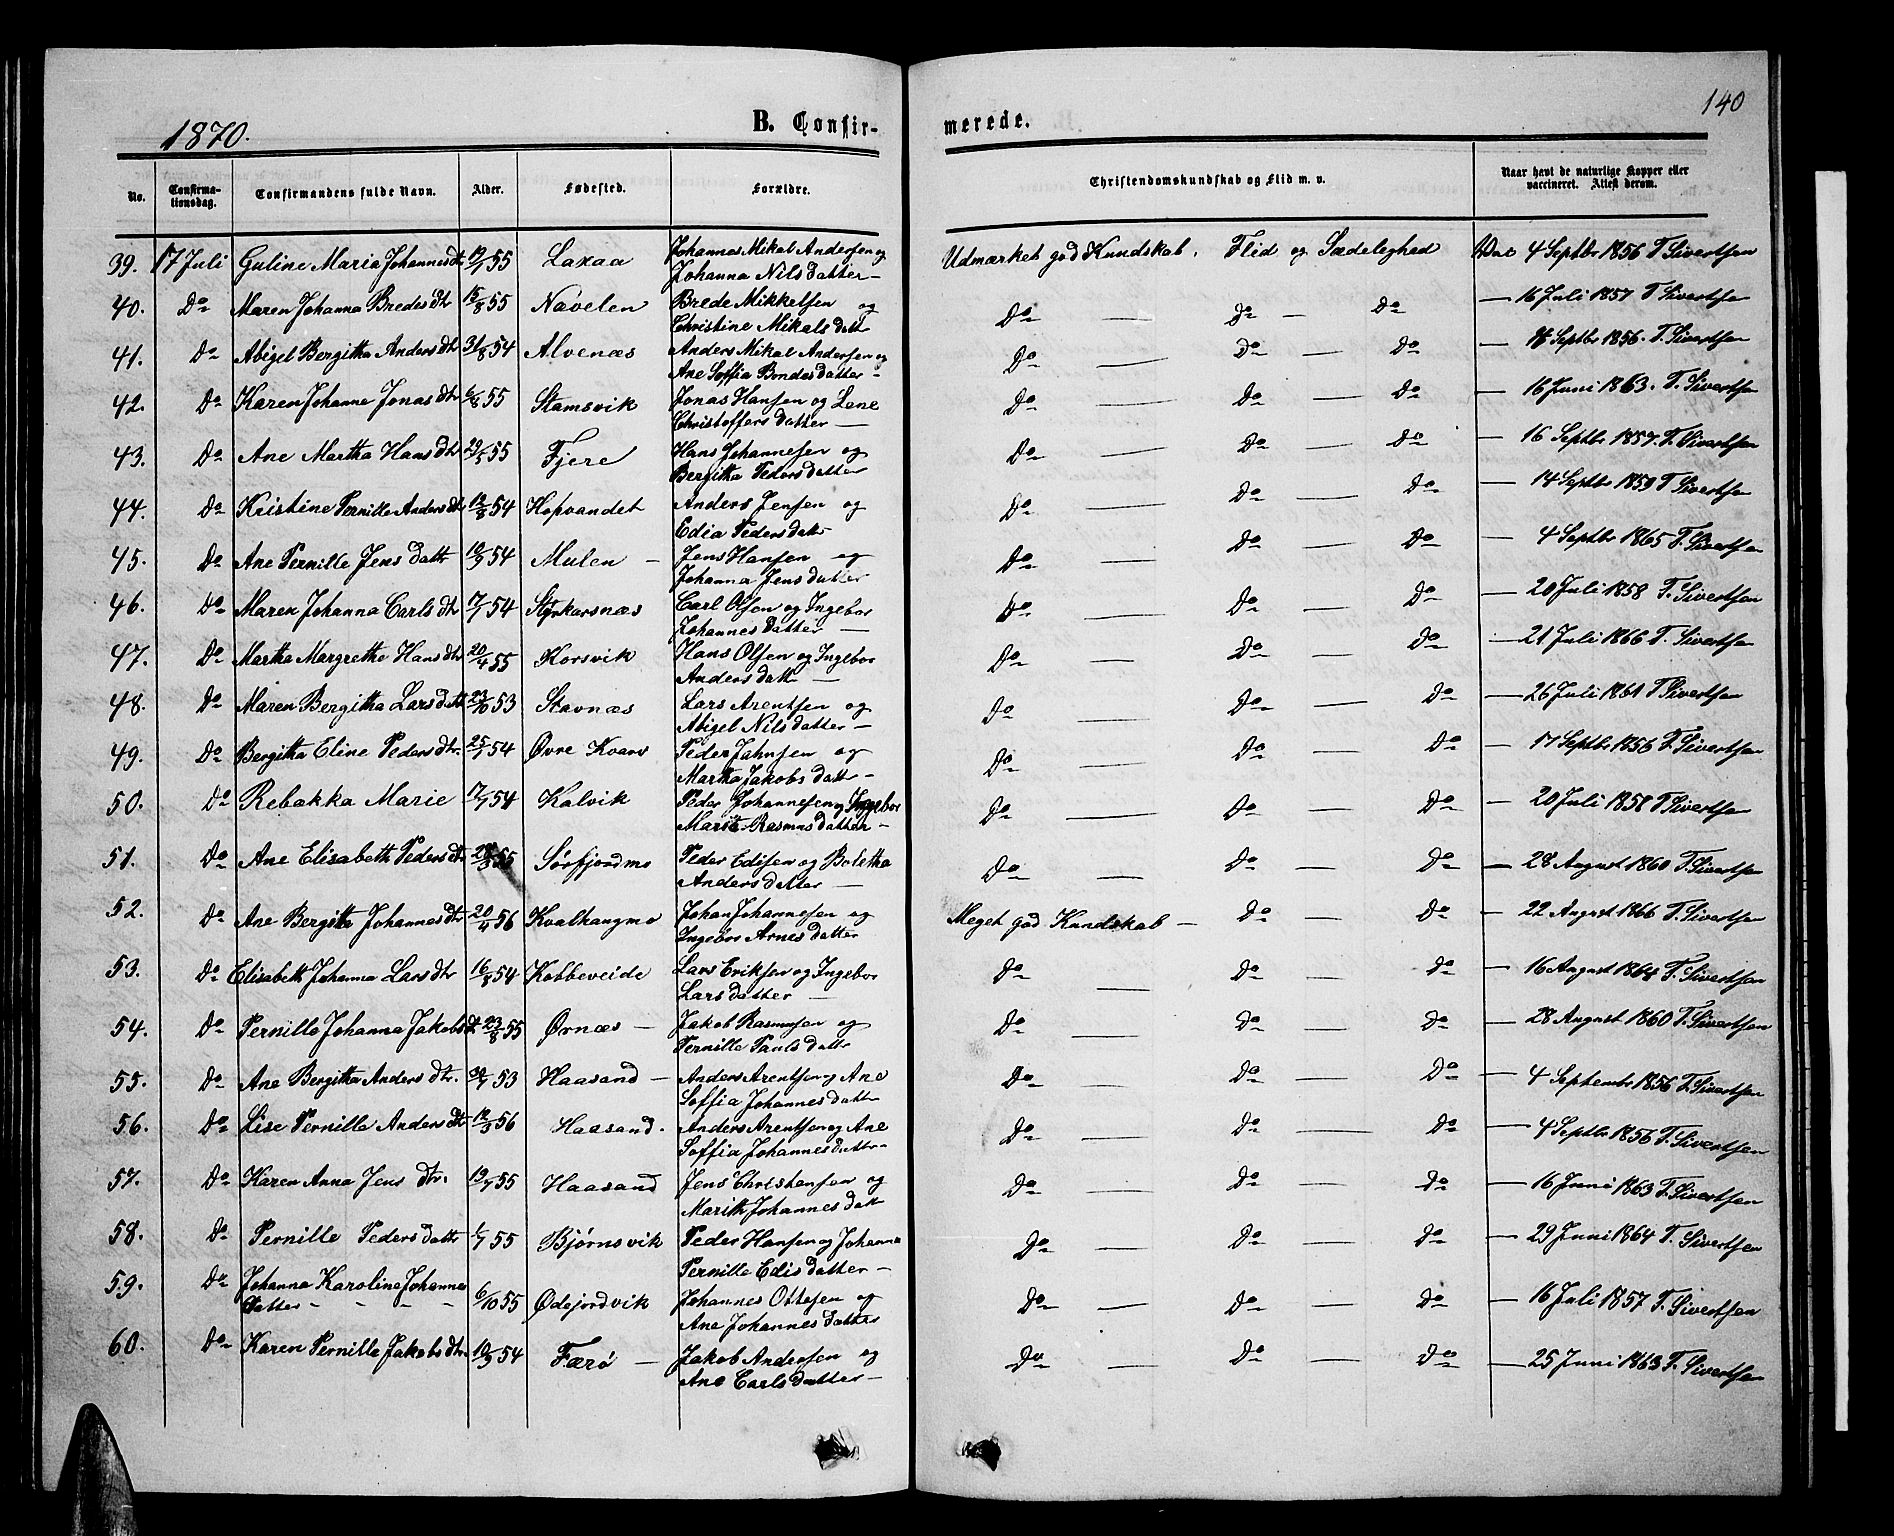 140
1870.
B. Confir-
merede.
No.
Confirma-
tionsdag.
Confirmandens fulde Navn.
Alder.
Fødested.
Forældre.
Christendomskundskab og Flid m. v.
Naar havt de naturlige Kopper eller
vaccineret. Attest derom.
39. 17 Juli Guline Maria Johannesdt 55 Laxaa Johannes Mikal Andersen og
Johanna Nilsdatter — Udmærket god Kundskab, Flid og Sædelighed Vac 4 Septbr 1856 T. Sivertsen
40. Do Maren Johanna Bredesdtr 15/8 55 Navelen Brede Mikkelsen og
Christine Mikalsdatt Do — Do — Do — 16 Juli 1857 T. Sivertsen
41. Do Abigel Bergitha Andersdtr 31/8 54 Alvenæs Anders Mikal Andersen og
Ane Soffia Bondesdatter - Do — Do — Do — Septbr 1856. T. Sivertsen
42. Do Karen Johanna Jonasdtr 6/8 55 Stamsvik Jonas Hansen og Lene
Christoffersdatter — Do — Do — Do — 16 Juni 1863. T. Sivertsen
43. Do Ane Martha Hansdtr 29/5 55 Fjere Hans Johannesen og
Bergitha Pedersdatter Do — Do — Do — 16 Septbr 1857. T. Sivertsen
44. Do Kristine Pernille Andersdtr 12/8 54 Hopvandet Anders Jensen og
Edia Pedersdatr Do — Do — Do — 14 Septbr 1859 T. Sivertsen
45. Do Ane Pernille Jensdattr 10/9 54 Mulen — Jens Hansen og
Johanna Jensdatter Do — Do — Do — 4 Septbr 1865 T. Sivertsen
46. Do Maren Johanna Carlsdtr 54 Styrkarsnæs Carl Olsen og Ingebor
Johannesdatter — Do — Do — Do — 20 Juli 1858 T. Sivertsen
47. Do Martha Margrethe Hansdtr 20/4 55 Korsvik Hans Olsen og Ingebor
Andersdatt — Do — Do — Do — 21 Juli 1866 T. Sivertsen
48. Do Maren Bergitha Larsdatt 23/10 53 Stavnæs Lars Arentsen og
Abigel Nilsdatter — Do — Do — Do — 26 Juli 1861 T. Sivertsen
49. Do Bergitha Eline Pedersdtr. 25/1 54 Øvre Kvarv Peder Jahnsen og
Martha Jakobsdatter — Do — Do — Do — 17 Septbr 1856 T. Sivertsen
50. Do Rebakka Marie 17/7 54 Kalvik Peder Johannesen og Ingebor
Marie Rasmusdatter — Do — Do — Do — 20 Juli 1858 T. Sivertsen
51. Do Ane Elisabeth Pedersdtr 55 Sørfjordmo Peder Edisen og Boletha
Andersdatter — Do — Do — Do — 28 August 1860 T. Sivertsen
52. Do Ane Bergitta Johannesdtr 20/4 56 Kvalhangmo Johan Johannesen og
Ingebor Arnesdatter Meget god Kundskab — Do — Do — 22 August 1866 T. Sivertsen
53. Do Elisabeth Johanna Larsdtr 16/8 54 Kobbeveide Lars Eriksen og Ingebor
Larsdatter — Do — Do — Do — 16 August 1868 T. Sivertsen
54. Do Pernille Johanna Jakobsdt 23/8 55 Ørnæs — Jakob Rasmusen og
Pernille Paulsdattr Do — Do — Do — 28 August 1860 T. Sivertsen
55. Do Ane Bergitha Andersdtr. 53 Haasand — Anders Arentsen og Ane
Soffia Johannesdatter Do — Do — Do — 4 September 1856 T. Sivertsen
56. Do Lise Pernille Andersdtr 12/3 56 Haasand. Anders Arentsen og Ane
Soffia Johannesdatter- Do — Do — Do — 4 Septbr 1856 T. Sivertsen
57. Do Karen Anna Jensdtr. 55 Haasand Jens Christensen og
Marith Johannesdatt Do — Do — Do — 16 Juni 1863 T. Sivertsen
58. Do Pernille Pedersdattr 1/7 55 Bjørnsvik Peder Hansen og Johanna
Pernille Edisdatter — Do — Do — Do — 29 Juni 1864 T. Sivertsen
59. Do Johanna Karoline Johannes
datter - - - - 6/10 55 Ødejordvik Johannes Ottesen og
Ane Johannesdatter Do — Do — Do — 16 Juli 1857 T. Sivertsen
60. Do Karen Pernille Jakobsdtr. 10/9 54 Færö — Jakob Andersen og
Ane Carlsdatter — Do — Do — Do — 25 Juni 1863 T. Sivertsen